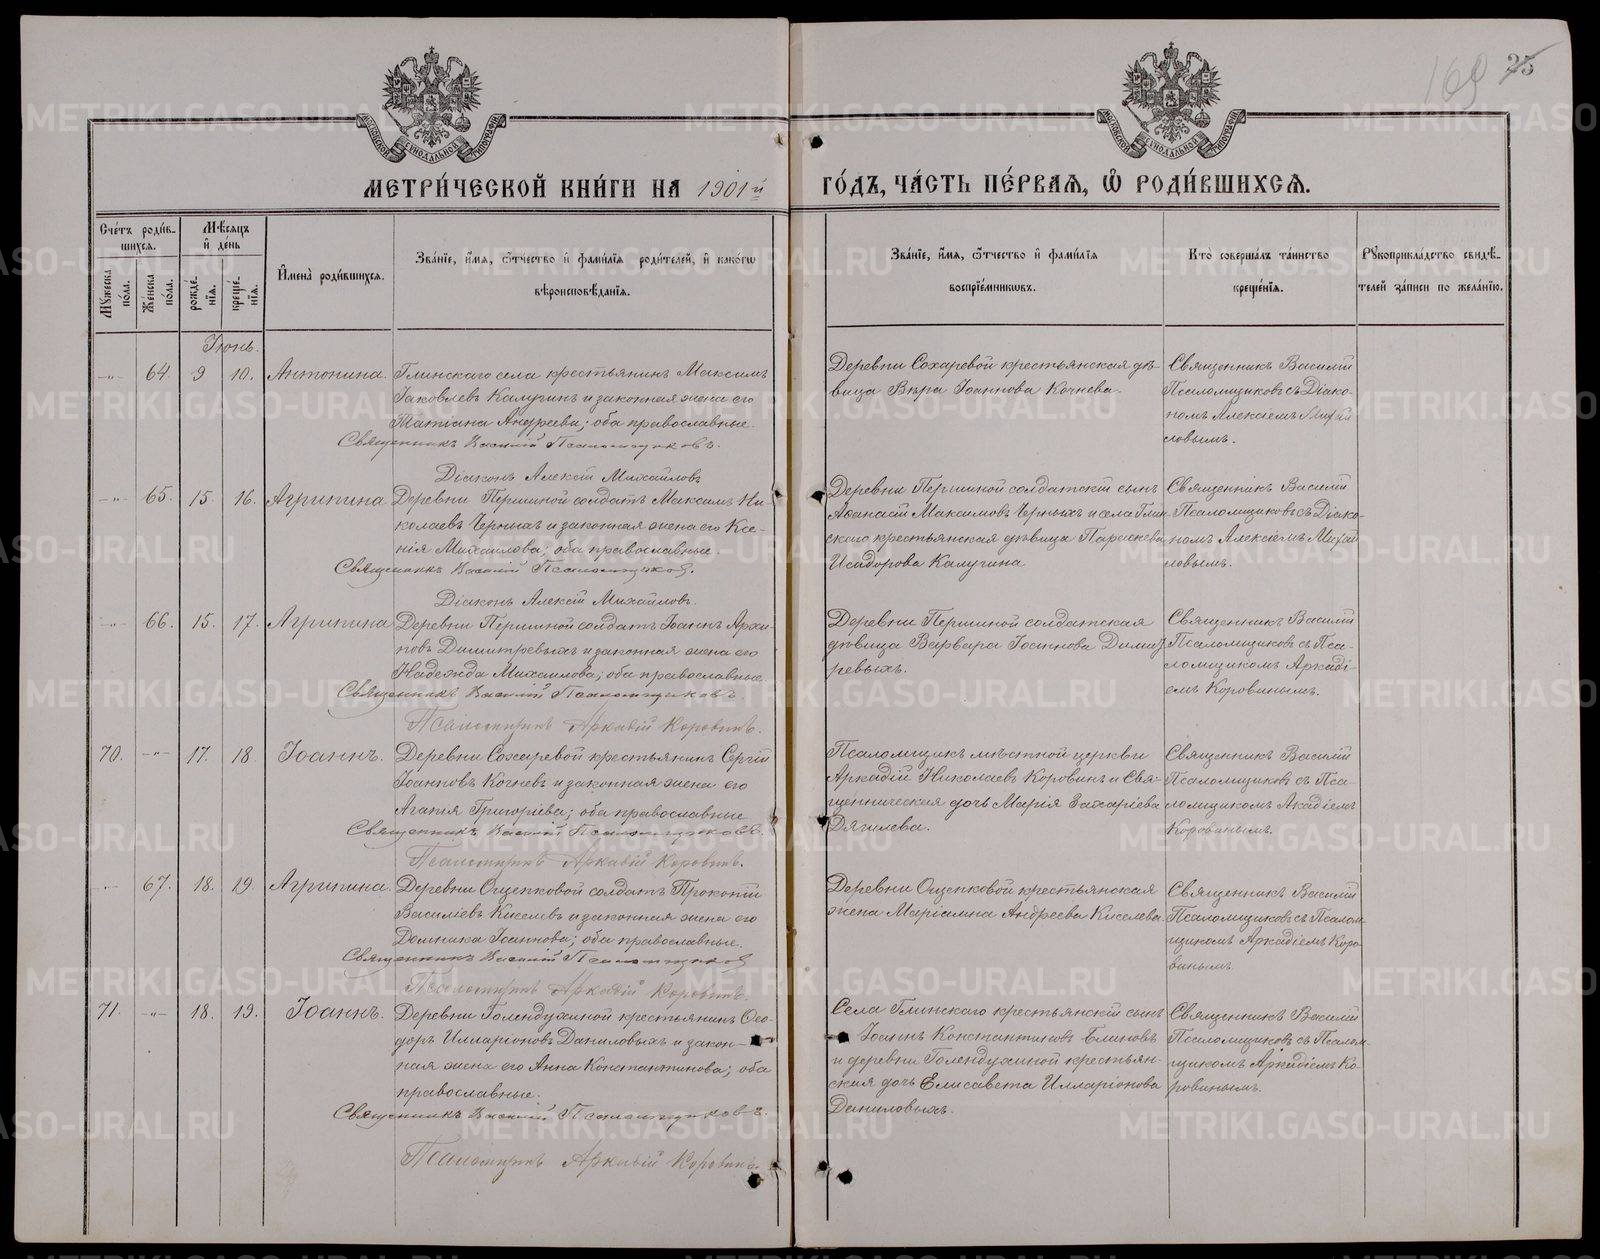 169 25
МЕТРИ́ЧЕСКОЙ КНИ́ГИ НА 1901й ГО́ДЪ, ЧА́СТЬ ПЕ́РВАѦ, Ѽ РОДИ́ВШИХСѦ.
Счетъ родив-
шихся.
Мужеска пола.
Женска пола.
Мѣсяцъ и день
рожде-
нія.
креще-
нія.
Имена родившихся.
Званіе, имя, ѿтчество и фамилія родителей, и какогѡ
вѣроисповѣданія.
Званіе, имя, ѿтчество и фамилія
воспріемникѡвъ.
Кто совершалъ таинство
крещенія.
Рукоприкладство свидѣ-
телей записи по желанію.
Іюнь.
—„— 64. 9 10. Антонина. Глинскаго села крестьянинъ Максимъ
Іаковлевъ Калугинъ и законная жена его
Татіана Андреева; оба православные.
Священникъ Василій Псаломщиковъ.
Діаконъ Алексій Михайловъ
Деревни Сохаревой крестьянская дѣ-
вица Вѣра Іоаннова Кочнева.
Священникъ Василій
Псаломщиковъ съ Діако-
номъ Алексіемъ Михай
ловымъ.
—„— 65. 15. 16. Агрипина Деревни Першиной солдатъ Максимъ Ни-
колаевъ Черныхъ и законная жена его Ксе-
нія Михаилова; оба православные.
Священникъ Василій Псаломщиковъ.
Діаконъ Алексій Михайловъ.
Деревни Першиной солдатскій сынъ
Аѳанасій Максимовъ Черныхъ и села Глин
скаго крестьянская дѣвица Параскева
Исидорова Калугина
Священникъ Василій
Псаломщиковъ съ Діако-
номъ Алексіемъ Михай
ловымъ.
—„— 66. 15. 17. Агрипина Деревни Першиной солдатъ Іоаннъ Архи-
повъ Димитревыхъ и законная жена его
Надежда Михаилова; оба православные.
Священникъ Василій Псаломщиковъ.
Псаломщикъ Аркадій Коровинъ.
Деревни Першиной солдатская
дѣвица Варвара Іоаннова Димит
ревыхъ.
Священникъ Василій
Псаломщиковъ съ Пса-
ломщикомъ Аркаді-
емъ Коровинымъ.
70. —„— 17. 18. Іоаннъ. Деревни Сохаревой крестьянинъ Сергій
Іоанновъ Кочневъ и законная жена его
Агапія Григоріева; оба православные
Священникъ Василій Псаломщиковъ.
Псаломщикъ Аркадій Коровинъ.
Псаломщикъ мѣстной церкви
Аркадій Николаевъ Коровинъ и Свя-
щенническая дочь Марія Захаріева
Дягилева.
Священникъ Василій
Псаломщиковъ съ Пса-
ломщикомъ Акадіемъ
Коровинымъ.
—„— 67. 18. 19. Агрипина. Деревни Ощепковой солдатъ Прокопій
Василіевъ Киселевъ и законная жена его
Домника Іоаннова; оба православные.
Священникъ Василій Псаломщиковъ
Псаломщикъ Аркадій Коровинъ.
Деревни Ощепковой крестьянская
жена Маріамна Андреева Киселева.
Священникъ Василій
Псаломщиковъ съ Псалом-
щикомъ Аркадіемъ Коро-
винымъ.
71. —„— 18. 19. Іоаннъ. Деревни Голендухиной крестьянинъ Ѳео-
доръ Илларіоновъ Даниловыхъ и закон-
ная жена его Анна Константинова; оба
православные.
Священникъ Василій Псаломщиковъ.
Псаломщикъ Аркадій Коровинъ.
Села Глинскаго крестьянскій сынъ
Іоаннъ Константиновъ Блиновъ
и деревни Голендухиной крестьян-
ская дочь Елисавета Илларіонова
Даниловыхъ.
Священникъ Василій
Псаломщиковъ съ Псалом-
щикомъ Аркадіемъ Ко-
ровинымъ.
METRIKI.GASO-URAL.RU